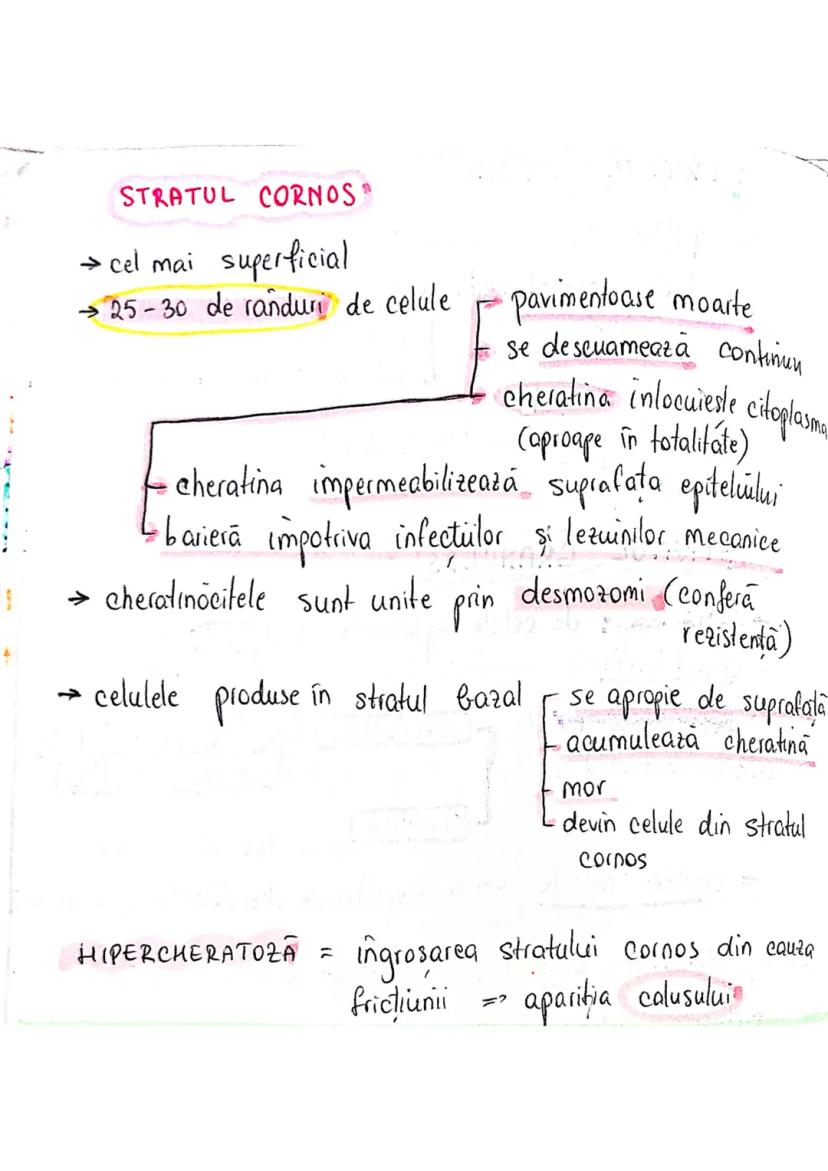 STRATUL CORNOS
→ cel mai superficial
→ 25-30 de rânduri de celule
pavimentoase moarte
se descuamează continuu
cheratina înlocuiește citoplasma
(aproape în totalitate)
cheratina impermeabilizează suprafața epiteliului
barieră împotriva infecțiilor și leziunilor mecanice
→ cheratinocitele sunt unite prin desmozomi (conferă
rezistență)
→ celulele produse în stratul bazal
se apropie de suprafață
acumulează cheratină
mor
devin celule din stratul
cornos
HIPERCHERATOZĂ = îngroșarea stratului cornos din cauza
fricțiunii => apariția calusului